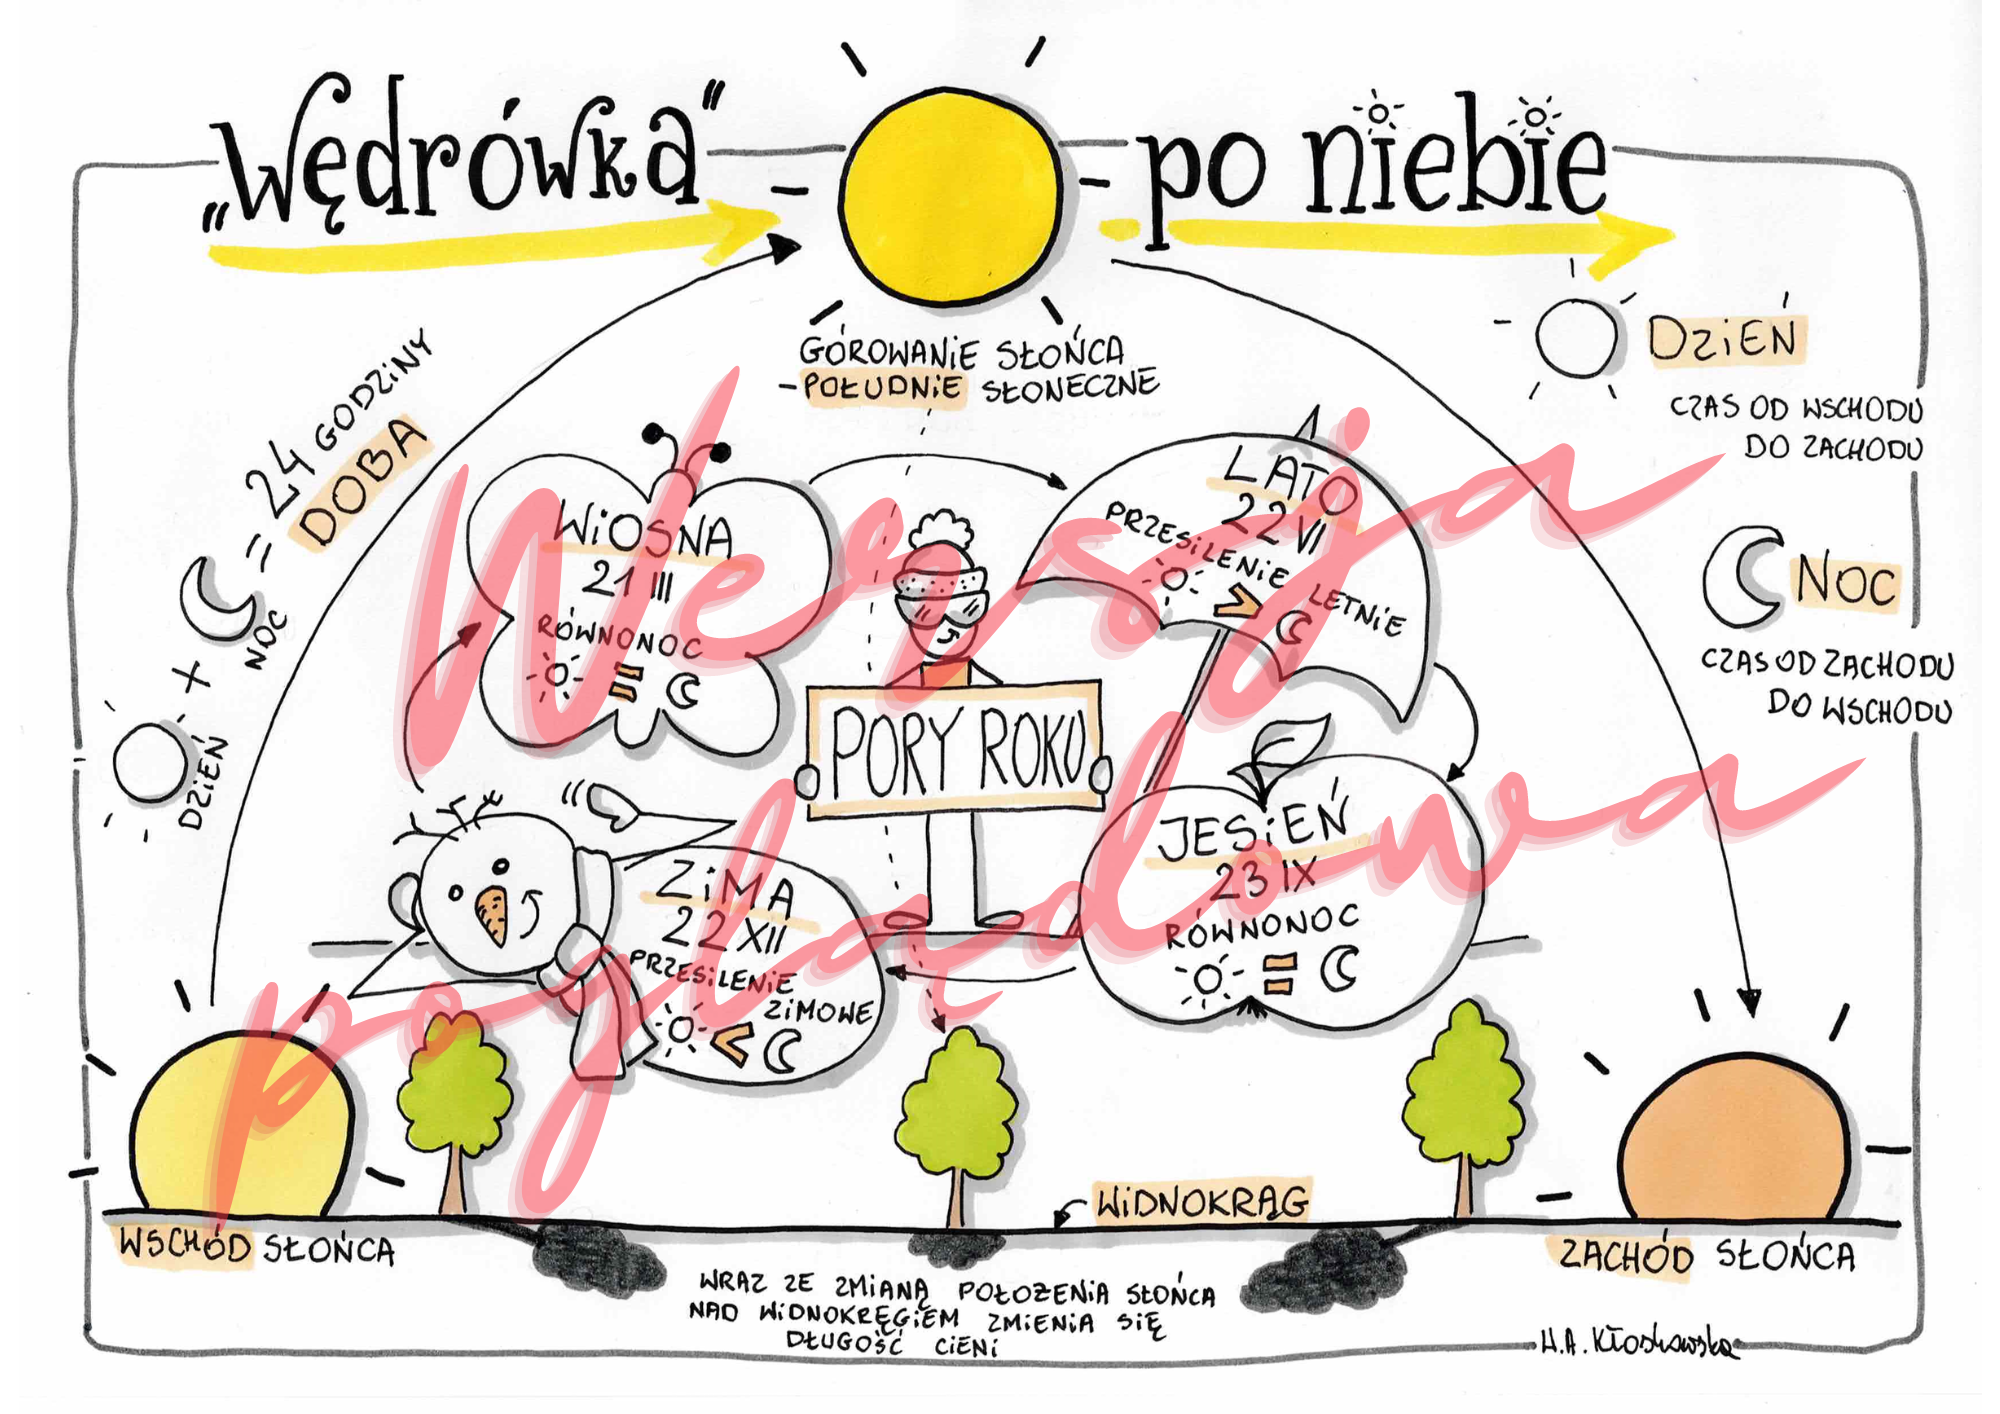 „Wędrówka" po niebie
GÓROWANIE SŁOŃCA
- POŁUDNIE SŁONECZNE
DZIEŃ
CZAS OD WSCHODU
DO ZACHODU
NOC
CZAS OD ZACHODU
DO WSCHODU
DZIEŃ + NOC = 24 GODZINY
DOBA
WIOSNA
21 III
RÓWNONOC
=
LATO
22 VI
PRZESILENIE LETNIE
>
PORY ROKU
JESIEŃ
23 IX
RÓWNONOC
=
ZIMA
22 XII
PRZESILENIE
ZIMOWE
<
Wersja
poglądowa
WIDNOKRĄG
WSCHÓD SŁOŃCA
ZACHÓD SŁOŃCA
WRAZ ZE ZMIANĄ POŁOŻENIA SŁOŃCA
NAD WIDNOKRĘGIEM ZMIENIA SIĘ
DŁUGOŚĆ CIENI
H.A. Kłoskowska